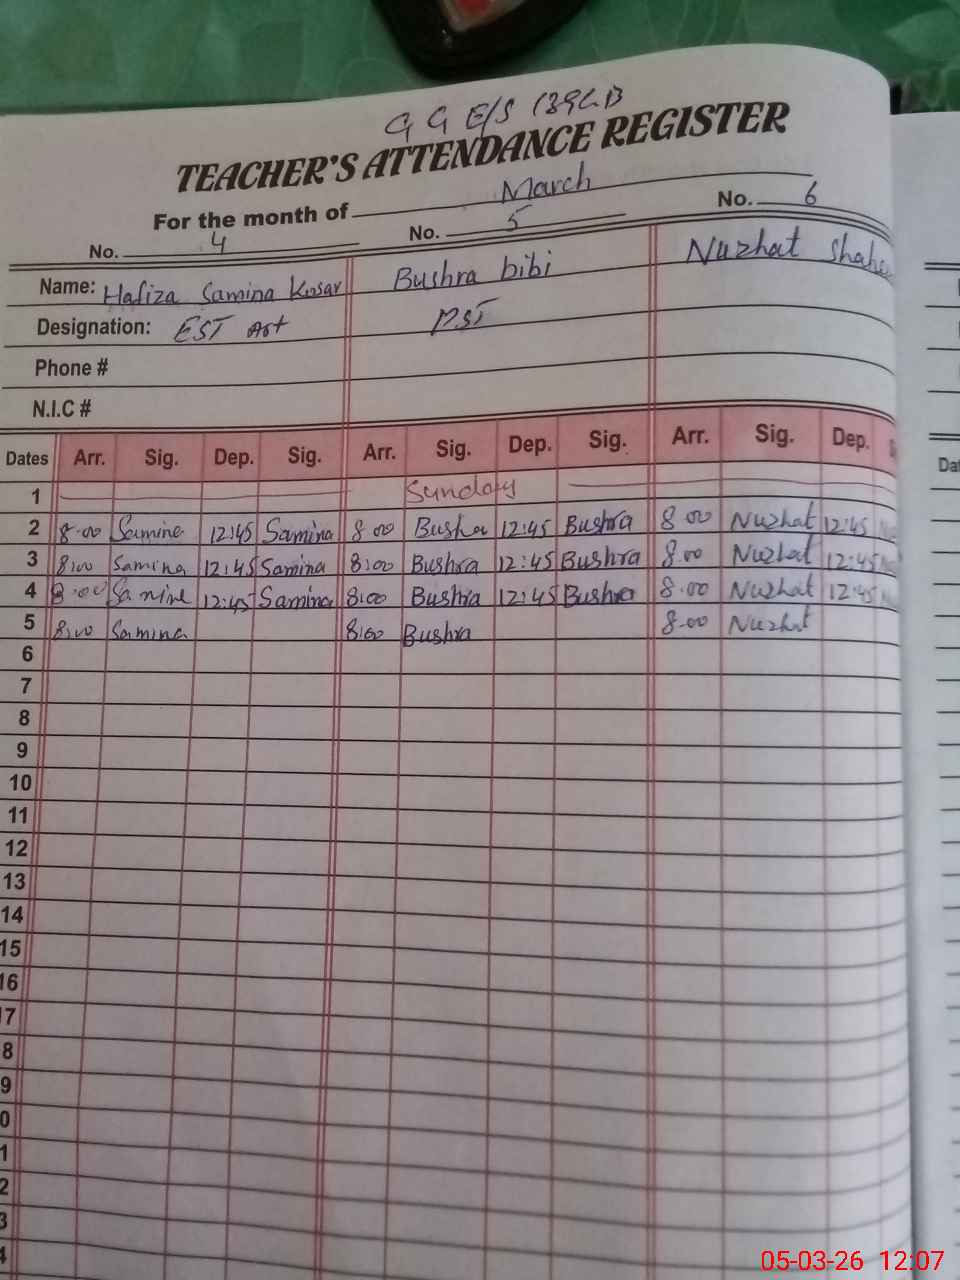 G G E/S 139G.B
TEACHER'S ATTENDANCE REGISTER
For the month of March
No. 4 No. 5 No. 6
Name: Hafiza Samina Kosar Bushra bibi Nuzhat Shahe
Designation: EST Art PST
Phone #
N.I.C #
Dates Arr. Sig. Dep. Sig. Arr. Sig. Dep. Sig. Arr. Sig. Dep. S
1 Sunday
2 8.00 Samina 12:45 Samina 8 00 Bushra 12:45 Bushra 8 00 Nuzhat 12:45 Nu
3 8:00 Samina 12:45 Samina 8:00 Bushra 12:45 Bushra 8.00 Nuzhat 12:45
4 8.00 Samina 12:45 Samina 8:00 Bushra 12:45 Bushra 8.00 Nuzhat 12:45
5 8:00 Samina 8:00 Bushra 8.00 Nuzhat
6
7
8
9
10
11
12
13
14
15
16
7
8
9
0
1
2
3
4
Dat
05-03-26 12:07